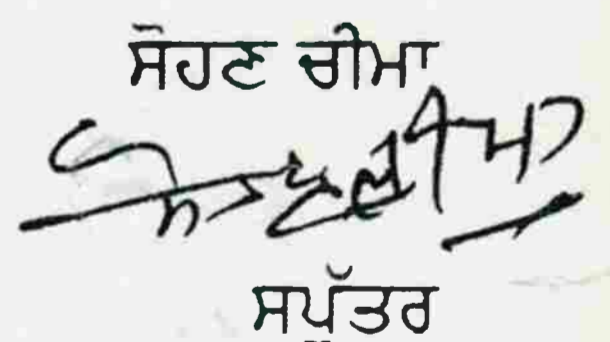 ਸੋਹਣ ਚੀਮਾ
ਸੋਹਣ ਚੀਮਾ
ਸਪੁੱਤਰ